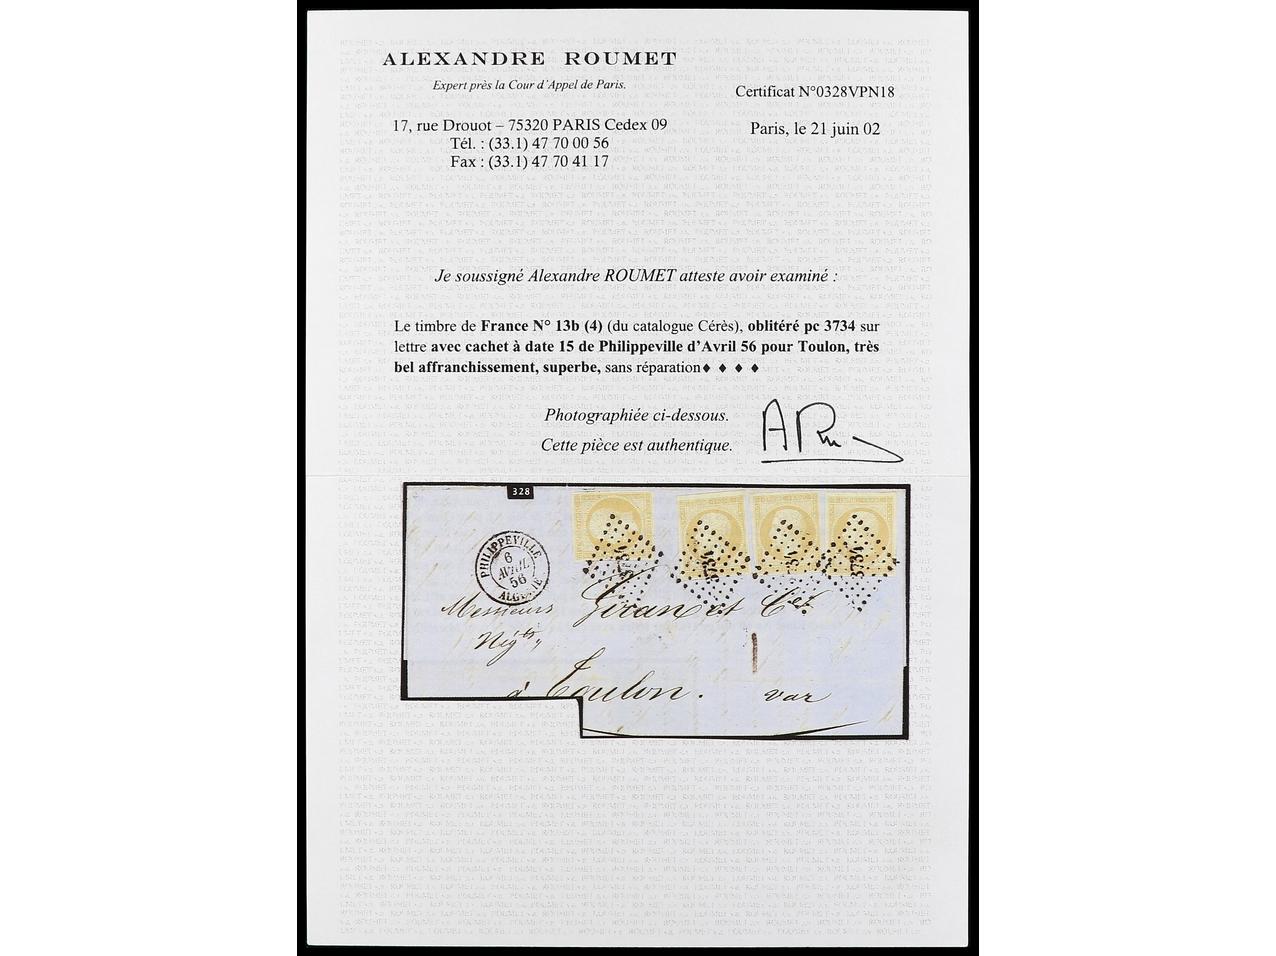 ALEXANDRE ROUMET
Expert près la Cour d'Appel de Paris.
Certificat N°0328VPN18
17, rue Drouot – 75320 PARIS Cedex 09
Paris, le 21 juin 02
Tél. : (33.1) 47 70 00 56
Fax : (33.1) 47 70 41 17
Je soussigné Alexandre ROUMET atteste avoir examiné :
Le timbre de France N° 13b (4) (du catalogue Cérès), oblitéré pc 3734 sur
lettre avec cachet à date 15 de Philippeville d'Avril 56 pour Toulon, très
bel affranchissement, superbe, sans réparation♦ ♦ ♦ ♦
Photographiée ci-dessous.
Cette pièce est authentique.
328
PHILIPPEVILLE
6
AVRIL
56
ALGERIE
3734
3734
3734
3734
Messieurs Giran et Cie
Négts
à Toulon. Var